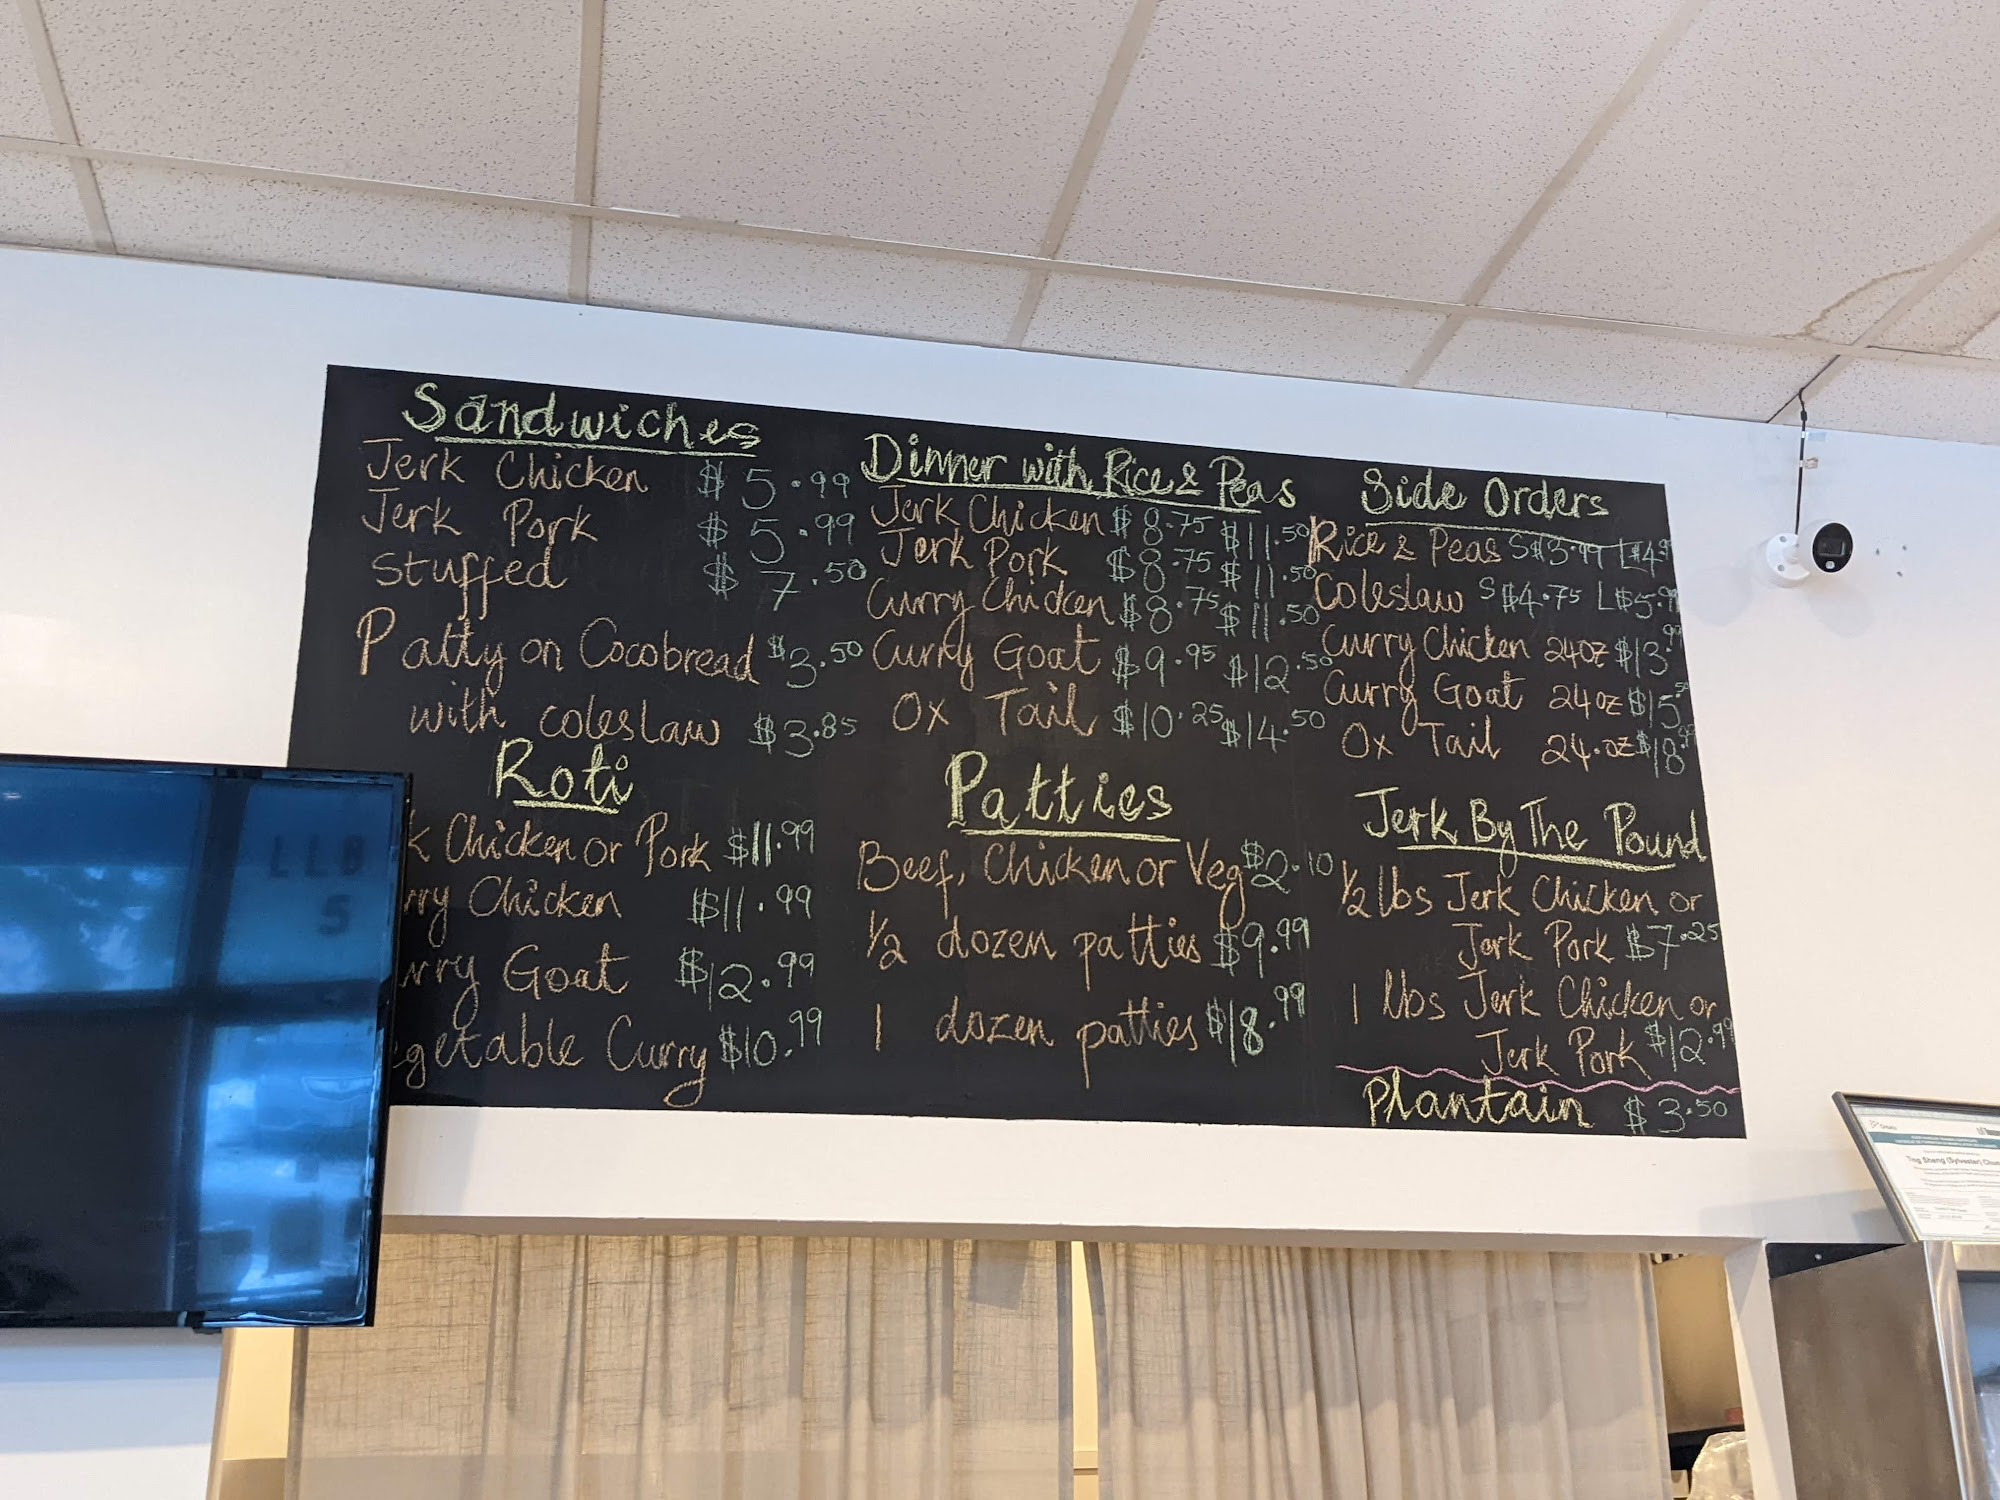 Sandwiches
Jerk Chicken $5.99
Jerk Pork $5.99
Stuffed $7.50
Patty on Cocobread $3.50
with coleslaw $3.85
Roti
k Chicken or Pork $11.99
rry Chicken $11.99
rry Goat $12.99
egetable Curry $10.99
Dinner with Rice & Peas
Jerk Chicken $8.75 $11.50
Jerk Pork $8.75 $11.50
Curry Chicken $8.75 $11.50
Curry Goat $9.95 $12.50
Ox Tail $10.25 $14.50
Patties
Beef, Chicken or Veg $2.10
1/2 dozen patties $9.99
1 dozen patties $18.99
Side Orders
Rice & Peas S $3.99 L $4.9
Coleslaw S $4.75 L $5.99
Curry Chicken 24oz $13.99
Curry Goat 24oz $15.50
Ox Tail 24.oz $18.99
Jerk By The Pound
1/2 lbs Jerk Chicken or
Jerk Pork $7.25
1 lbs Jerk Chicken or
Jerk Pork $12.99
Plantain $3.50
LLB
5
Ontario
Ting Sheng (Sylvester)